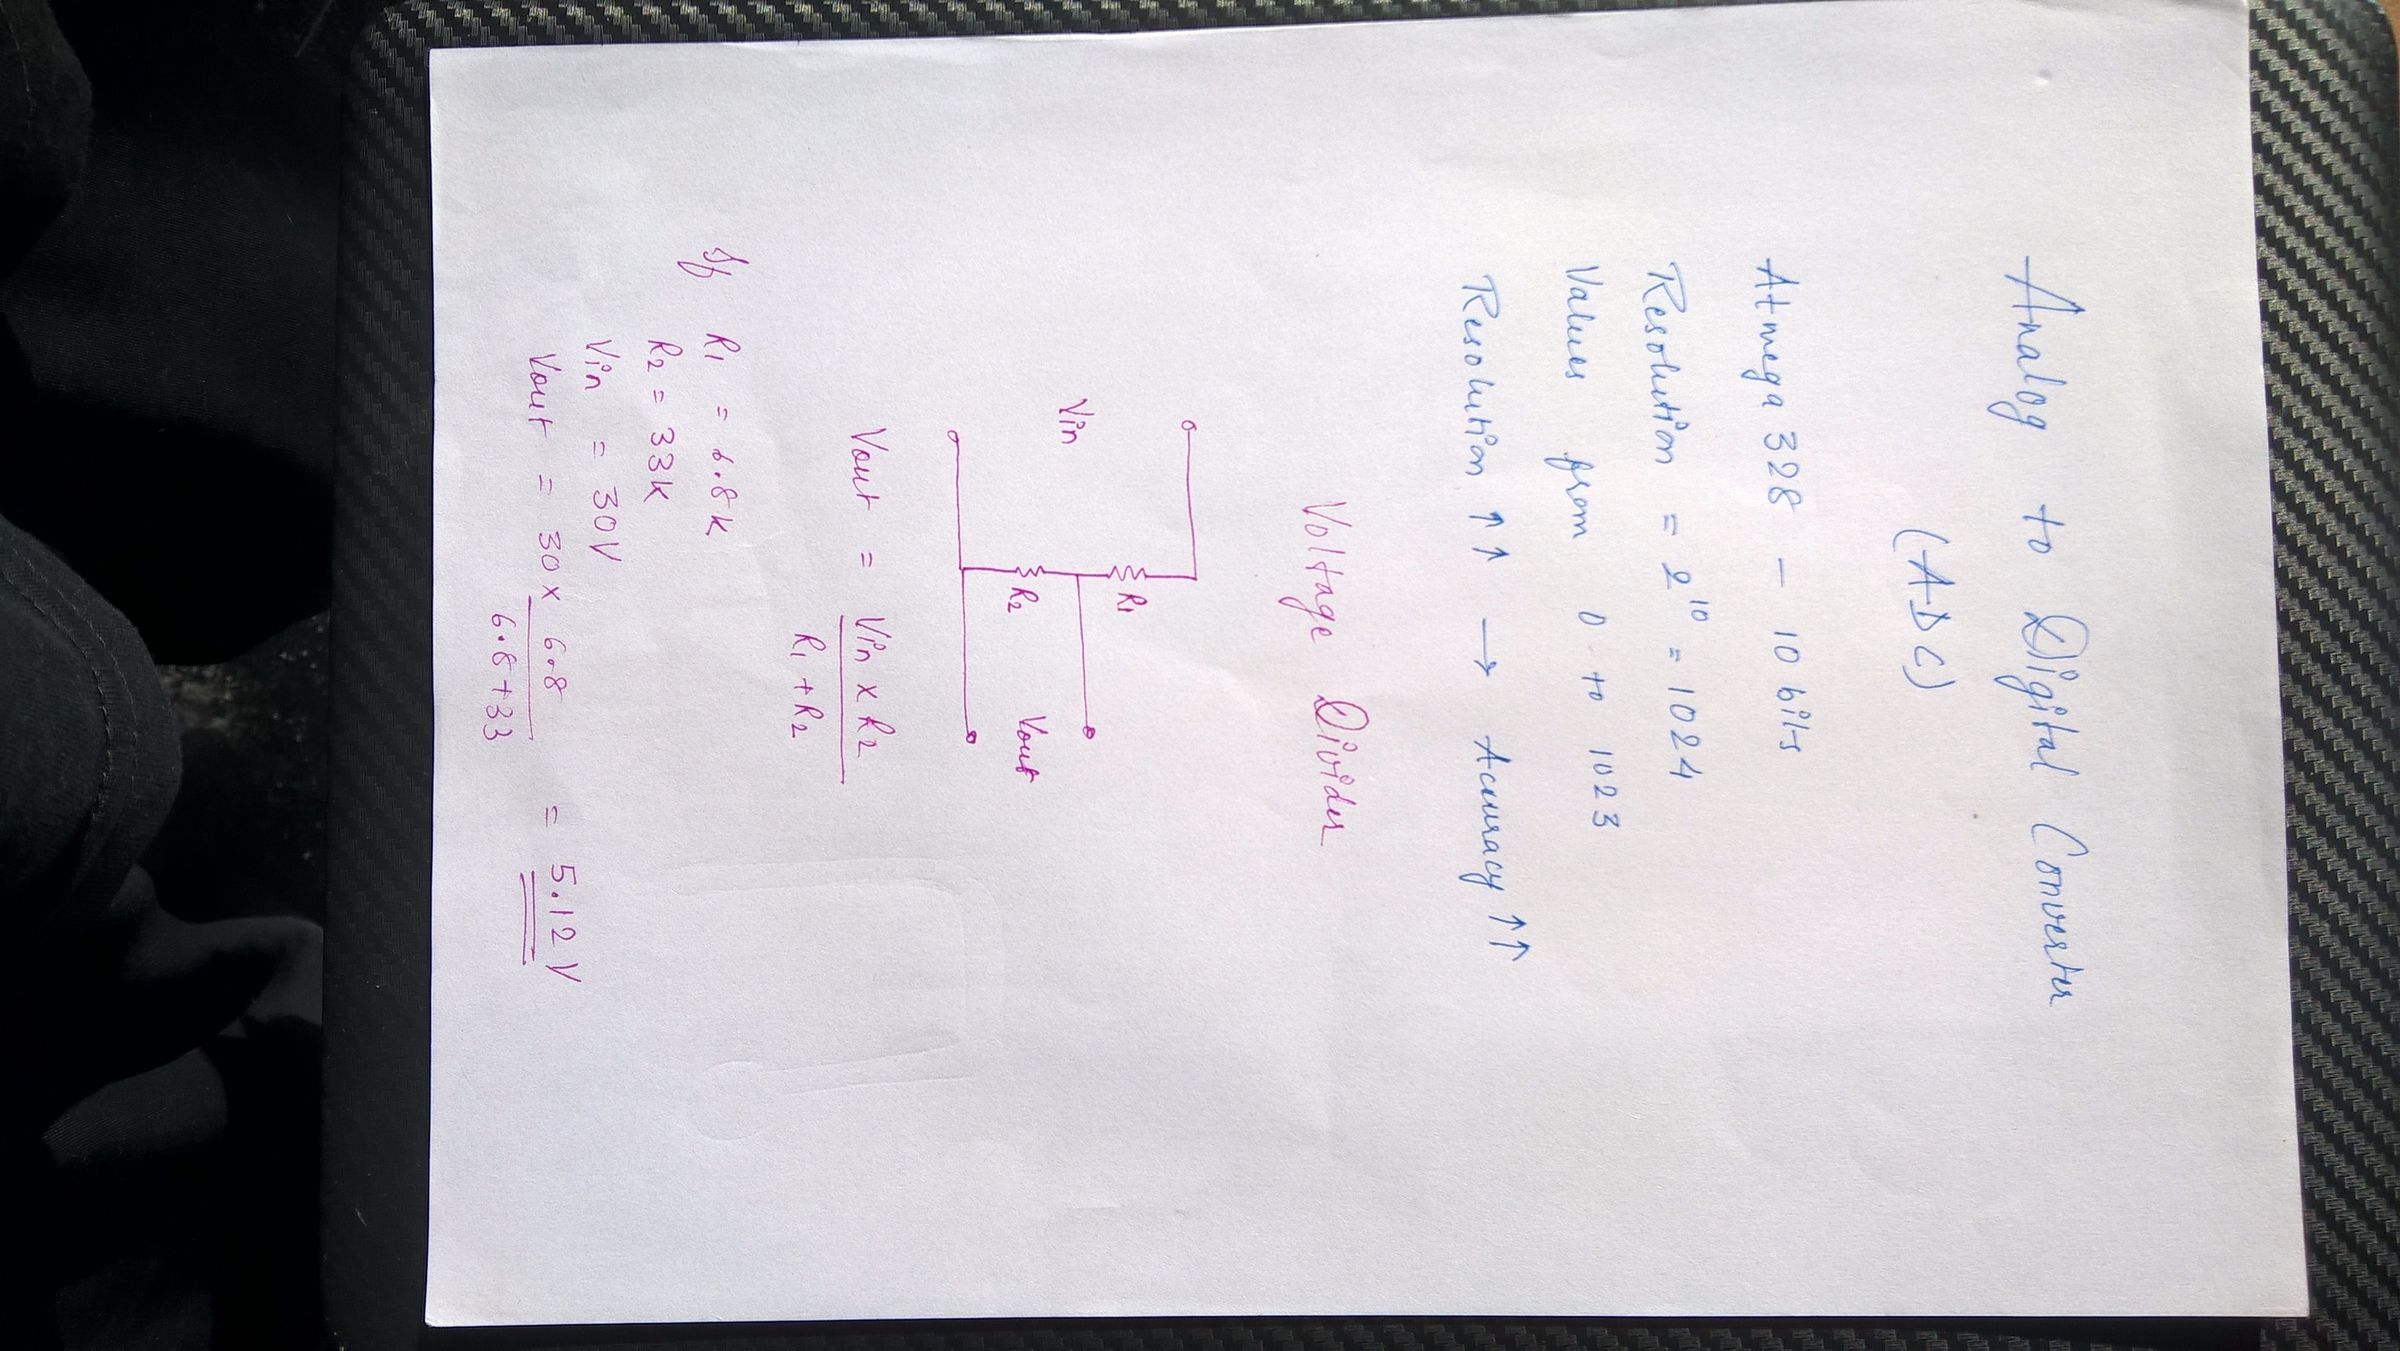 Analog to Digital Converter
(ADC)
Atmega 328 - 10 bits
Resolution = 2¹⁰ = 1024
Values from 0 to 1023
Resolution ↑↑ → Accuracy ↑↑
Voltage Divider
R1
Vin
R2
Vout
Vout = Vin x R2
R1 + R2
If R1 = 6.8K
R2 = 33K
Vin = 30V
Vout = 30 x 6.8 = 5.12 V
6.8+33